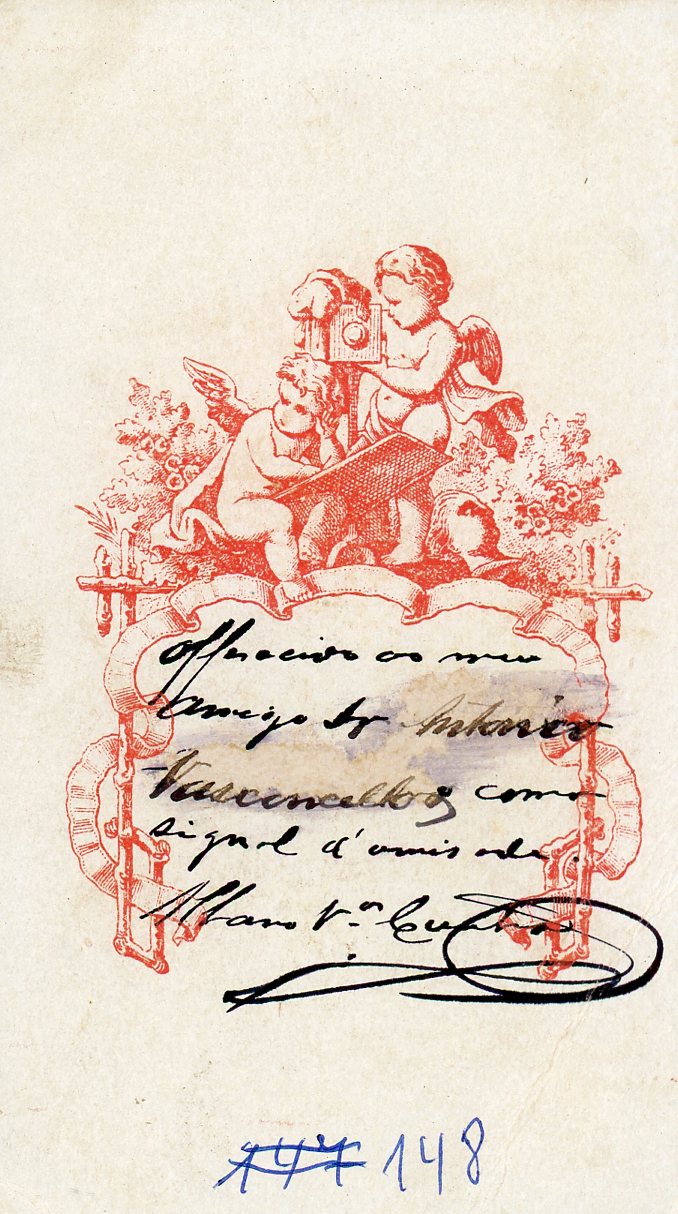 Offereciso ao meu
amigo Sr Antonio
Vasconcellos como
signal d'amisade.
Alvaro Vª Cunha
147 148